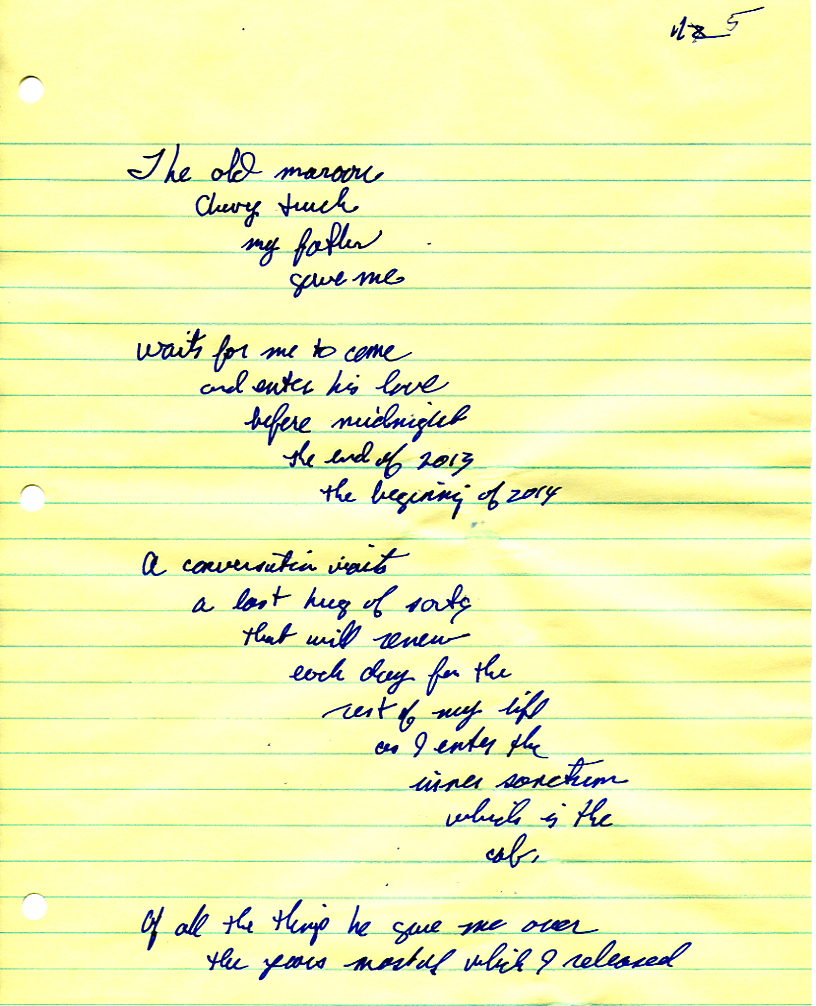 5
The old maroon
Chevy truck
my father
gave me
waits for me to come
and enter his love
before midnight
the end of 2013
the beginning of 2014
A conversation waits
a last hug of sorts
that will renew
each day for the
rest of my life
as I enter the
inner sanctum
which is the
cab.
Of all the things he gave me over
the years most of which I released